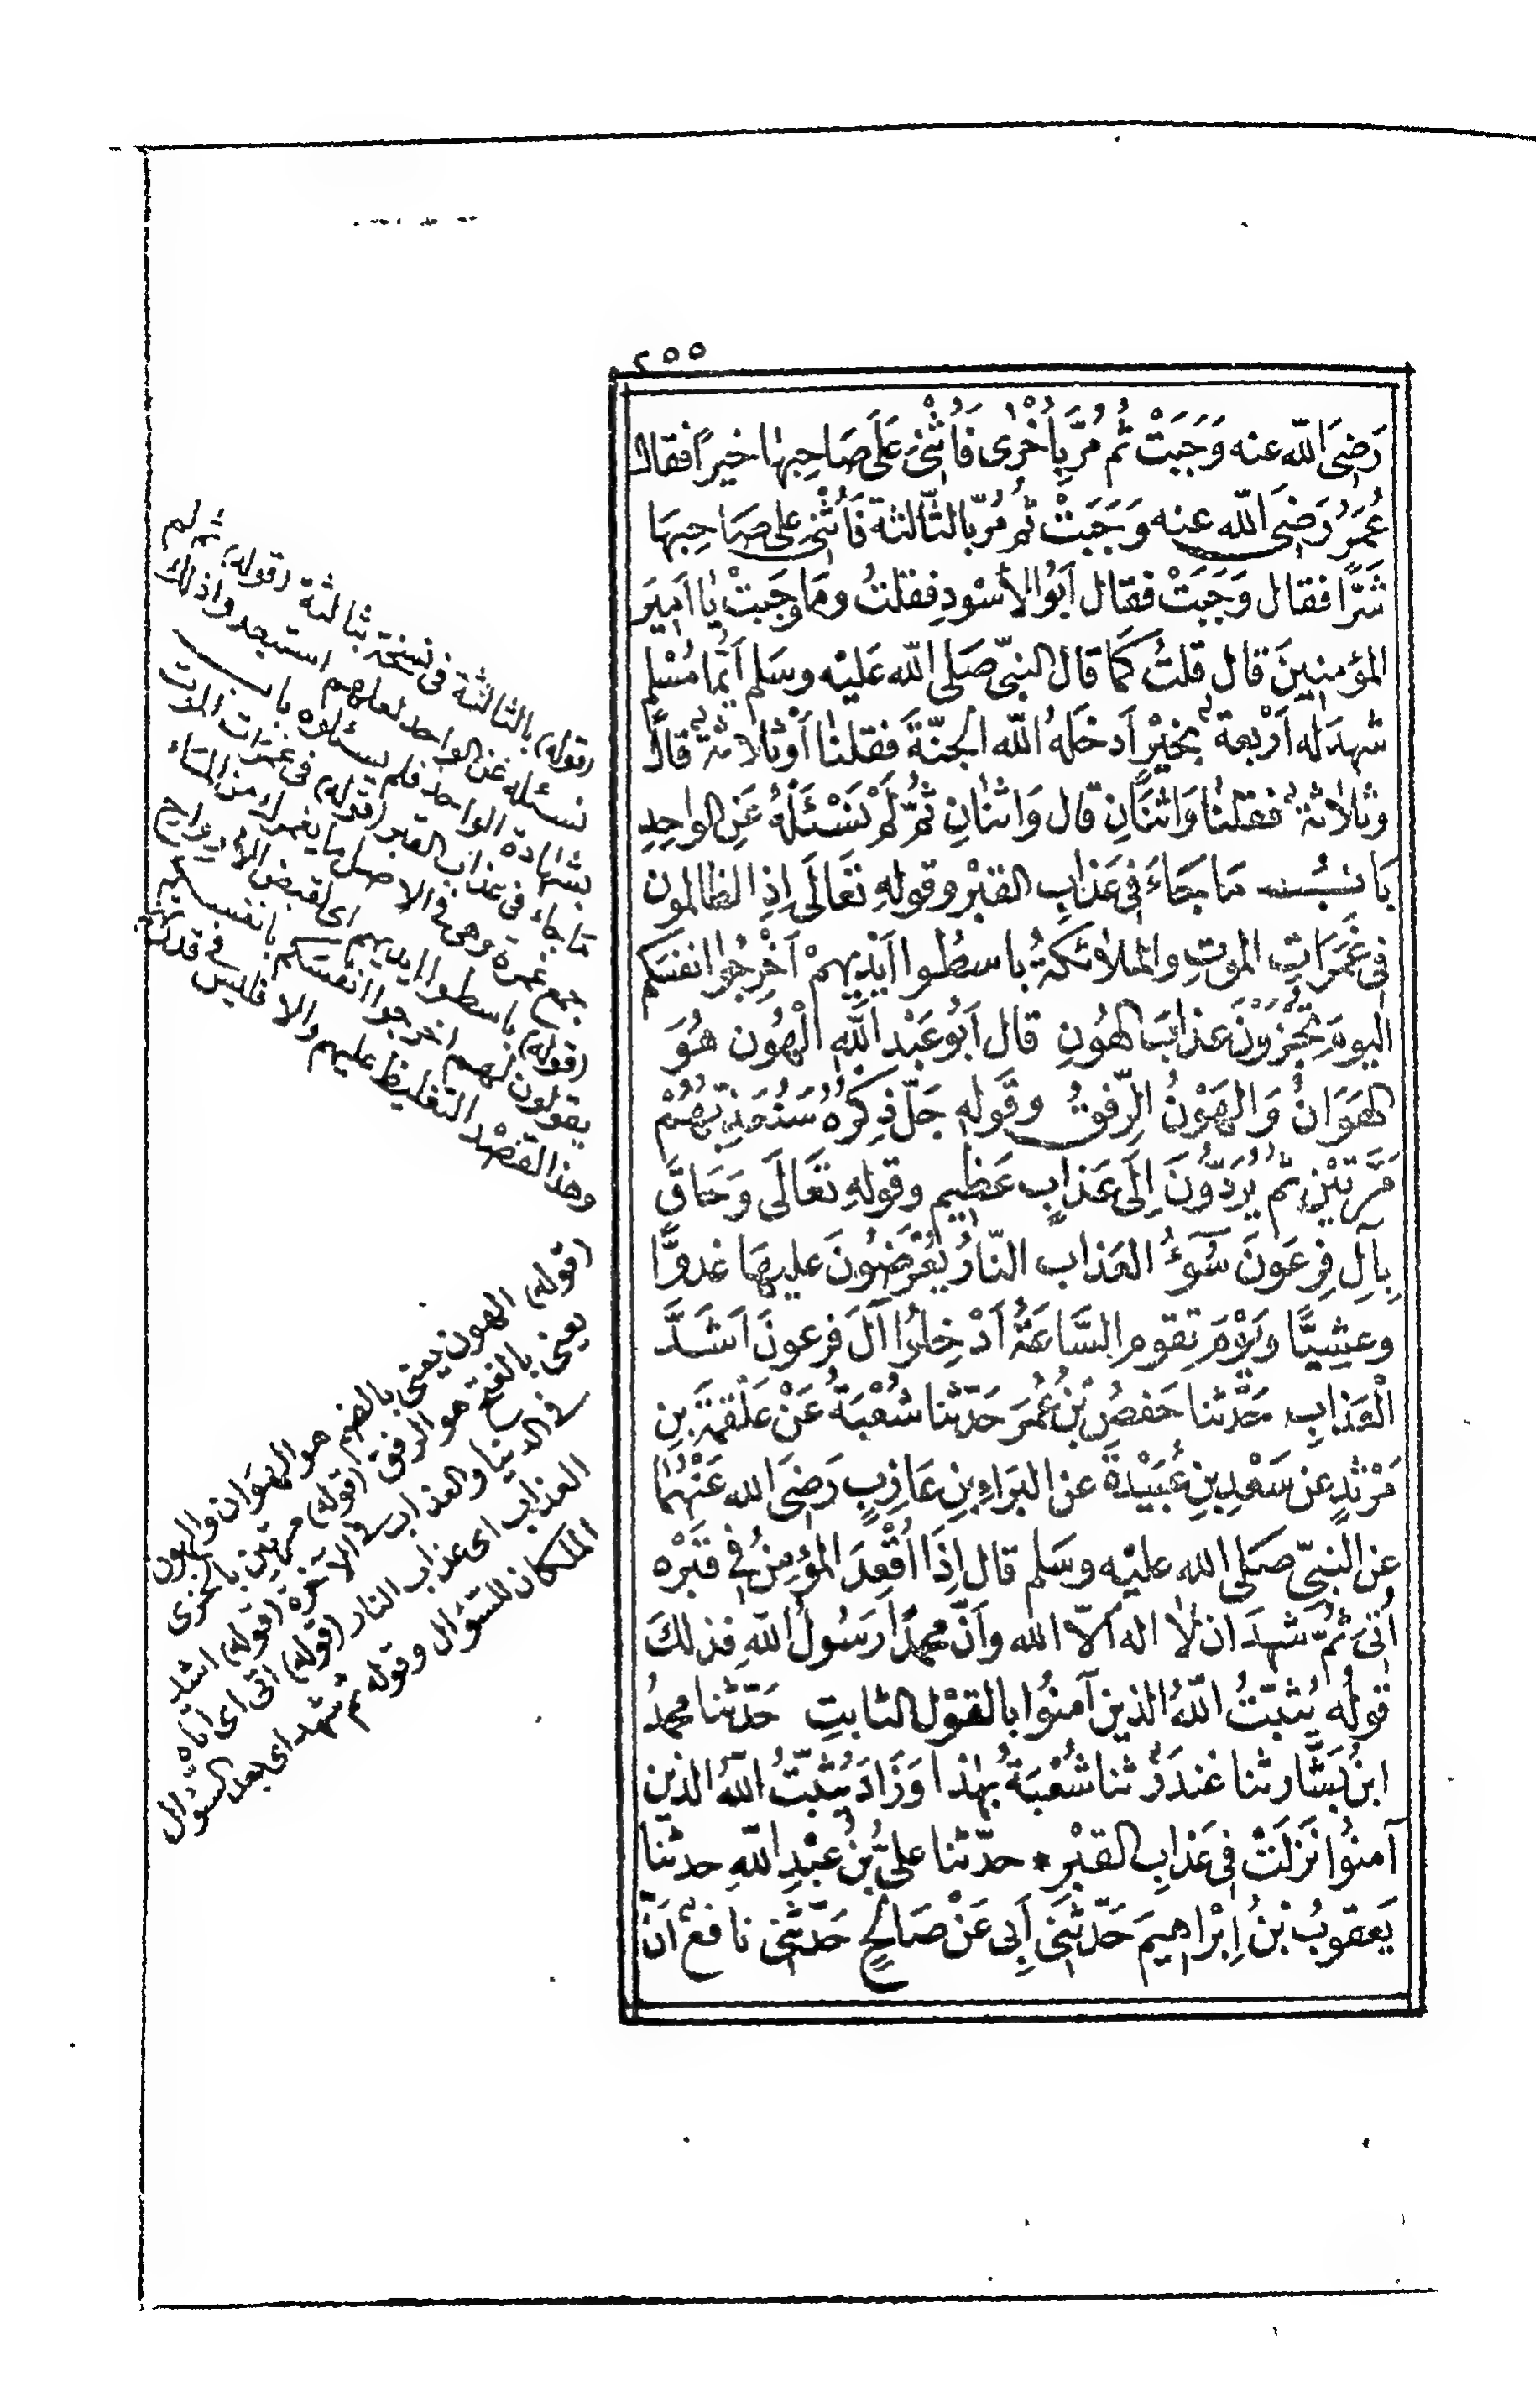 ٢٥٥
رَضِيَ الله عنه وَجَبَتْ ثُم مُرَّ بِأُخْرى فَأُثْنِيَ عَلَى صَاحِبِهَا خيرًا فقال
عُمَرُ رَضِيَ الله عنه وَجَبَتْ ثُم مُرَّ بالثَّالثة فَأُثْنِيَ على صَاحِبِهَا
شَرًّا فقال وَجَبَتْ فقال أَبُو الأسْودِ فقلتُ ومَا وَجَبتْ يا أمِيرَ
المؤمنِينَ قال قلتُ كَمَا قال النبيّ صَلى الله عَليْه وسَلم أَيُّمَا مُسْلِمٍ
شَهِدَ لَه أَرْبعة بخيْرٍ أَدخَلَهُ الله الجنّةَ فقلنَا أَوْ ثَلاثَة قالَ
وثَلاثة فقلنَا وَاثنَانِ قال وَاثنانِ ثُمَّ لَمْ نَسْئَلْهُ عَنِ الواحِدِ
بَابُ مَا جَاءَ فى عَذابِ القبْر وقولهِ تَعَالَى إِذِ الظالمون
فِى غَمَرَاتِ الموتِ والملائكةُ باسطُوا أَيْدِيهِمْ أَخْرِجُوا انفسَكم
اليومَ تُجْزَوْنَ عذابَ الهُونِ قال أَبُو عَبْد اللهِ الْهُون هُوَ
الهَوَانُ وَالهَوْنُ الرِّفقُ وقَوله جَلّ ذِكرُهُ سَنُعَذِّبُهُمْ
مَرَّتَيْنِ ثُم يُرَدُّونَ إِلَى عَذابٍ عَظِيمٍ وقولهِ تَعَالَى وَحَاقَ
بِآلِ فِرعَونَ سُوءُ العَذاب النّارُ يُعْرَضُونَ عليهَا غدوًّا
وعشِيًّا ويَوْمَ تقوم السَّاعَةُ أَدْخِلُوا آلَ فرعونَ اَشَدَّ
الْعَذابِ حَدَّثنا حَفصُ بْنُ عُمَرَ حَدّثنا شُعْبَةُ عَنْ عَلْقمَةَ بنِ
مَرْثدٍ عن سَعْدِ بنِ عُبَيْدةَ عن البَرَاءِ بنِ عَازبٍ رَضِيَ الله عَنْهُمَا
عن النبيّ صَلى الله عليْه وسَلم قال إِذَا أُقْعِدَ المؤمِنُ فى قَبْرِه
أُتِىَ ثُمَّ شَهِدَ ان لَا اله الّا الله وأنّ محمدًا رَسُولُ اللهِ فذلكَ
قولُه يُثبّتُ اللهُ الذين آمنُوا بالقوْل الثابتِ حَدّثنا محمدُ
ابنُ بَشَّار ثنا غندَرٌ ثنا شُعْبَةُ بهٰذا وَزَادَ يُثبّتُ اللهُ الذين
آمنُوا نَزلَتْ فى عَذابِ القبْرِ * حدّثنا علىُّ بنُ عبْدِ اللهِ حدثنا
يَعقوبُ بْنُ إِبْراهيمَ حَدّثنى أَبِى عَنْ صَالحٍ حَدّثنى نافعٌ أَنّ
(قوله) بالثالثة فى نسخة بثالثة (قوله) ثم لم
نسئله عن الواحد لعلهم استبعدوا ذلك
بشهادة الواحد فلم يسئلوه باب
ما جاء فى عذاب القبر (قوله) فى غمرات الموت
جمع غمرة وهى فى الاصل ما يغمرك من الماء
(قوله) باسطوا ايديهم اى لقبض الارواح
يقولون لهم اخرجوا انفسكم بانفسكم
وهذا القصْد التغليظ عليهم والا فليس فى قدرتهم
(قوله) الهون يعنى بالضم هو الهوَان والهون
يعنى بالفتح هو الرفق (قوله) مرتين بالخزى
فى الدنيا والعذاب فى الآخرة (قوله) اشد
العذاب اى عذاب النار (قوله) اتى اى اتاه
الملكان للسؤال وقوله ثم شهد اى بعد السؤال